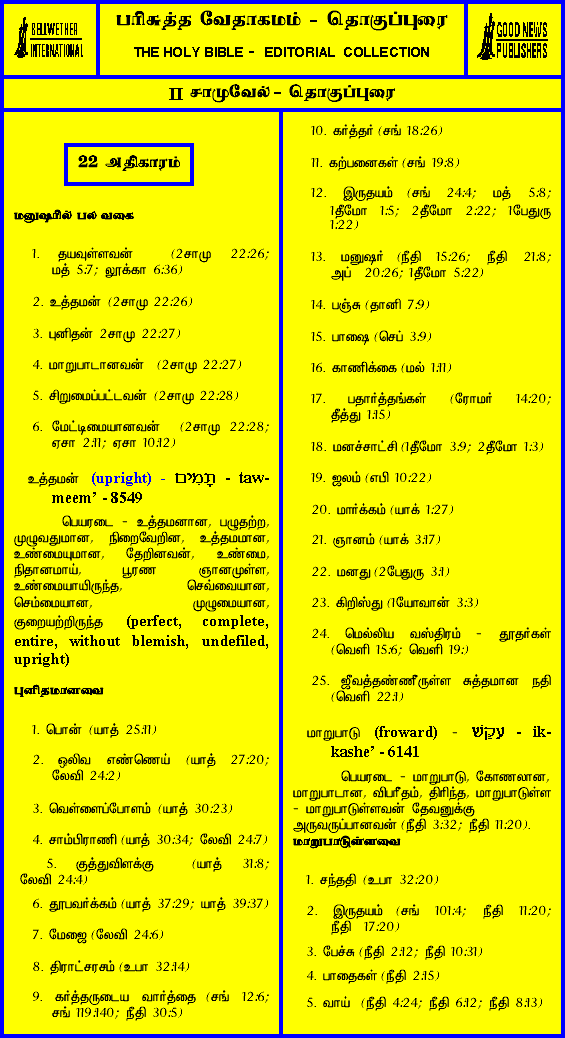 BELLWETHER
INTERNATIONAL
பரிசுத்த வேதாகமம் - தொகுப்புரை
THE HOLY BIBLE - EDITORIAL COLLECTION
GOOD NEWS
PUBLISHERS
II சாமுவேல் - தொகுப்புரை
22 அதிகாரம்
மனுஷரில் பல வகை
1. தயவுள்ளவன் (2சாமு 22:26;
மத் 5:7; லூக்கா 6:36)
2. உத்தமன் (2சாமு 22:26)
3. புனிதன் 2சாமு 22:27)
4. மாறுபாடானவன் (2சாமு 22:27)
5. சிறுமைப்பட்டவன் (2சாமு 22:28)
6. மேட்டிமையானவன் (2சாமு 22:28;
ஏசா 2:11; ஏசா 10:12)
உத்தமன் (upright) - תָּמִים - taw-
meem’ - 8549
பெயரடை - உத்தமனான, பழுதற்ற,
முழுவதுமான, நிறைவேறின, உத்தமமான,
உண்மையுமான, தேறினவன், உண்மை,
நிதானமாய், பூரண ஞானமுள்ள,
உண்மையாயிருந்த, செவ்வையான,
செம்மையான, முழுமையான,
குறையற்றிருந்த (perfect, complete,
entire, without blemish, undefiled,
upright)
புனிதமானவை
1. பொன் (யாத் 25:11)
2. ஒலிவ எண்ணெய் (யாத் 27:20;
லேவி 24:2)
3. வெள்ளைப்போளம் (யாத் 30:23)
4. சாம்பிராணி (யாத் 30:34; லேவி 24:7)
5. குத்துவிளக்கு (யாத் 31:8;
லேவி 24:4)
6. தூபவர்க்கம் (யாத் 37:29; யாத் 39:37)
7. மேஜை (லேவி 24:6)
8. திராட்சரசம் (உபா 32:14)
9. கர்த்தருடைய வார்த்தை (சங் 12:6;
சங் 119:140; நீதி 30:5)
10. கர்த்தர் (சங் 18:26)
11. கற்பனைகள் (சங் 19:8)
12. இருதயம் (சங் 24:4; மத் 5:8;
1தீமோ 1:5; 2தீமோ 2:22; 1பேதுரு
1:22)
13. மனுஷர் (நீதி 15:26; நீதி 21:8;
அப் 20:26; 1தீமோ 5:22)
14. பஞ்சு (தானி 7:9)
15. பாஷை (செப் 3:9)
16. காணிக்கை (மல் 1:11)
17. பதார்த்தங்கள் (ரோமர் 14:20;
தீத்து 1:15)
18. மனச்சாட்சி (1தீமோ 3:9; 2தீமோ 1:3)
19. ஜலம் (எபி 10:22)
20. மார்க்கம் (யாக் 1:27)
21. ஞானம் (யாக் 3:17)
22. மனது (2பேதுரு 3:1)
23. கிறிஸ்து (1யோவான் 3:3)
24. மெல்லிய வஸ்திரம் - தூதர்கள்
(வெளி 15:6; வெளி 19:)
25. ஜீவத்தண்ணீருள்ள சுத்தமான நதி
(வெளி 22:1)
மாறுபாடு (froward) - עִקֵּשׁ - ik-
kashe’ - 6141
பெயரடை - மாறுபாடு, கோணலான,
மாறுபாடான, விபரீதம், திரிந்த, மாறுபாடுள்ள
- மாறுபாடுள்ளவன் தேவனுக்கு
அருவருப்பானவன் (நீதி 3:32; நீதி 11:20).
மாறுபாடுள்ளவை
1. சந்ததி (உபா 32:20)
2. இருதயம் (சங் 101:4; நீதி 11:20;
நீதி 17:20)
3. பேச்சு (நீதி 2:12; நீதி 10:31)
4. பாதைகள் (நீதி 2:15)
5. வாய் (நீதி 4:24; நீதி 6:12; நீதி 8:13)